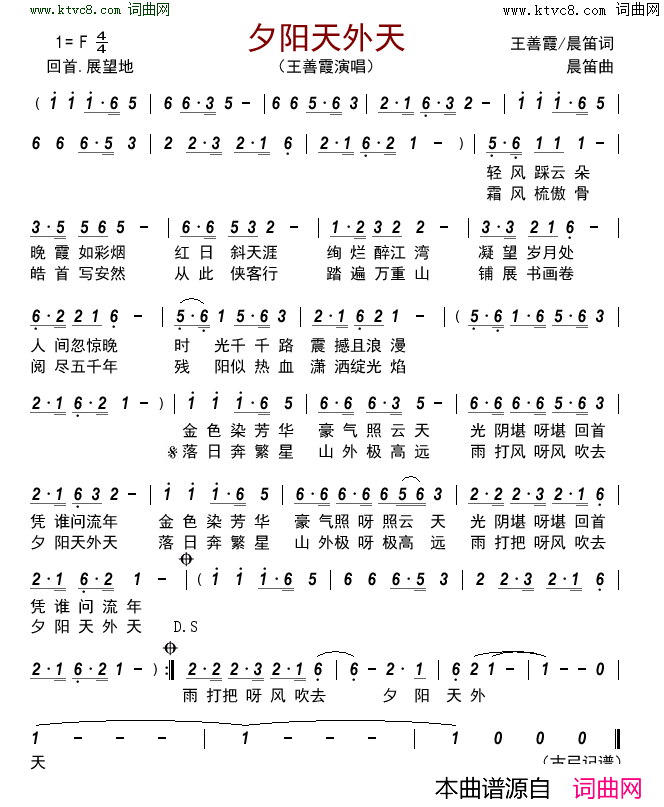 www.ktvc8.com 词曲网
www.ktvc8.com 词曲网
1= F 4/4
夕阳天外天
王善霞/晨笛词
回首.展望地
（王善霞演唱）
晨笛曲
( i i i·6 5 | 6 6·3 5 – | 6 6 5·6 3 | 2·1 6·3 2 – | i i i·6 5
6 6 6·5 3 | 2 2·3 2·1 6 | 2·1 6·2 1 – ) | 5·6 1 1 1 – |
轻 风 踩云 朵
霜 风 梳傲 骨
3·5 5 6 5 – | 6·6 5 3 5 – | 1·2 3 2 2 – | 3·3 2 1 6 – |
晚 霞 如彩烟 红 日 斜天涯 绚 烂 醉江 湾 凝 望 岁月处
皓 首 写安然 从 此 侠客行 踏 遍 万重 山 铺 展 书画卷
6·2 2 1 6 – | 5·6 1 5·6 3 | 2·1 6 2 1 – | ( 5·6 1·6 5·6 3 |
人 间忽惊晚 时 光千 千 路 震 撼且浪 漫
阅 尽五千年 残 阳似 热 血 潇 洒绽光 焰
2·1 6·2 1 – ) | i i i·6 5 | 6·6 6·3 5 – | 6·6 6·6 5·6 3 |
金 色 染 芳 华 豪 气 照 云 天 光 阴堪 呀堪 回首
落 日 奔 繁 星 山 外 极 高 远 雨 打风 呀风 吹去
2·1 6 3 2 – | i i i·6 5 | 6·6 6·6 6 5 6 | 2·2 2·3 2·1 6 |
凭 谁问流年 金 色 染 芳 华 豪 气照 呀 照云 天 光 阴堪 呀堪 回首
夕 阳天外天 落 日 奔 繁 星 山 外极 呀极高 远 雨 打把 呀风 吹去
2·1 6·2 1 – | ( i i i·6 5 | 6 6 6·3 5 | 2 2·3 2·1 6 |
凭 谁 问 流 年
夕 阳 天 外 天 D.S
2·1 6·2 1 – ) :‖ 2·2 2·3 2·1 6 | 6 – 2·1 | 6 2 1 – | 1 – – 0 |
雨 打把 呀 风 吹去 夕 阳 天 外
1 – – – | 1 – – – | 1 0 0 0 ‖
天
（古弓记谱）
本曲谱源自 词曲网